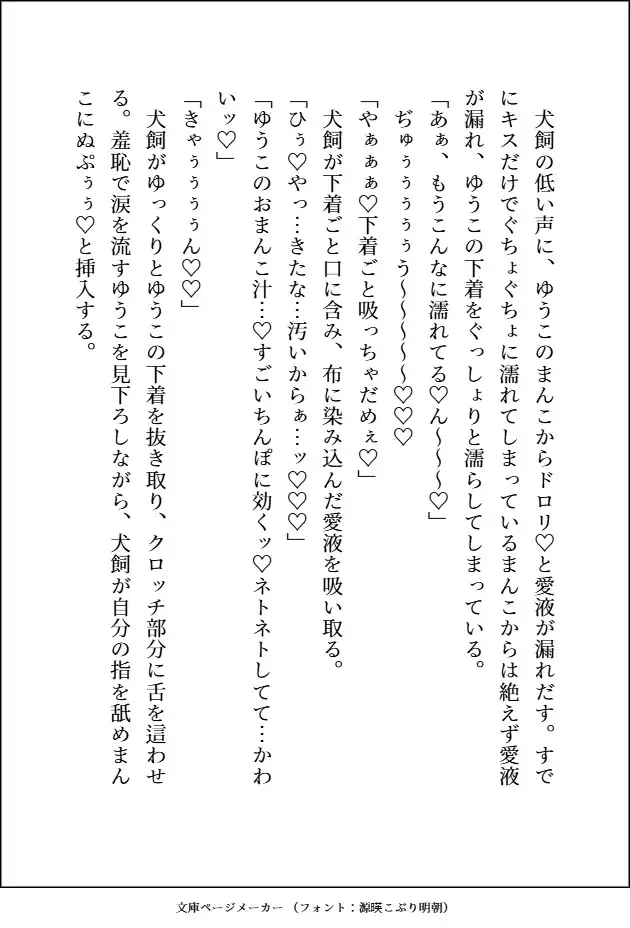 犬飼の低い声に、ゆうこのまんこからドロリ♡と愛液が漏れだす。すで
にキスだけでぐちょぐちょに濡れてしまっているまんこからは絶えず愛液
が漏れ、ゆうこの下着をぐっしょりと濡らしてしまっている。
「あぁ、もうこんなに濡れてる♡ん～～～♡」
　ぢゅぅぅぅぅう～～～～～♡♡♡
「やぁぁぁ♡下着ごと吸っちゃだめぇ♡」
　犬飼が下着ごと口に含み、布に染み込んだ愛液を吸い取る。
「ひぅ♡やっ…きたな…汚いからぁ…ッ♡♡♡」
「ゆうこのおまんこ汁…♡すごいちんぽに効くッ♡ネトネトしてて…かわ
いッ♡」
「きゃぅぅぅぅん♡♡」
　犬飼がゆっくりとゆうこの下着を抜き取り、クロッチ部分に舌を這わせ
る。羞恥で涙を流すゆうこを見下ろしながら、犬飼が自分の指を舐めまん
こにぬぷぅぅ♡と挿入する。
文庫ページメーカー（フォント：源暎こぶり明朝）